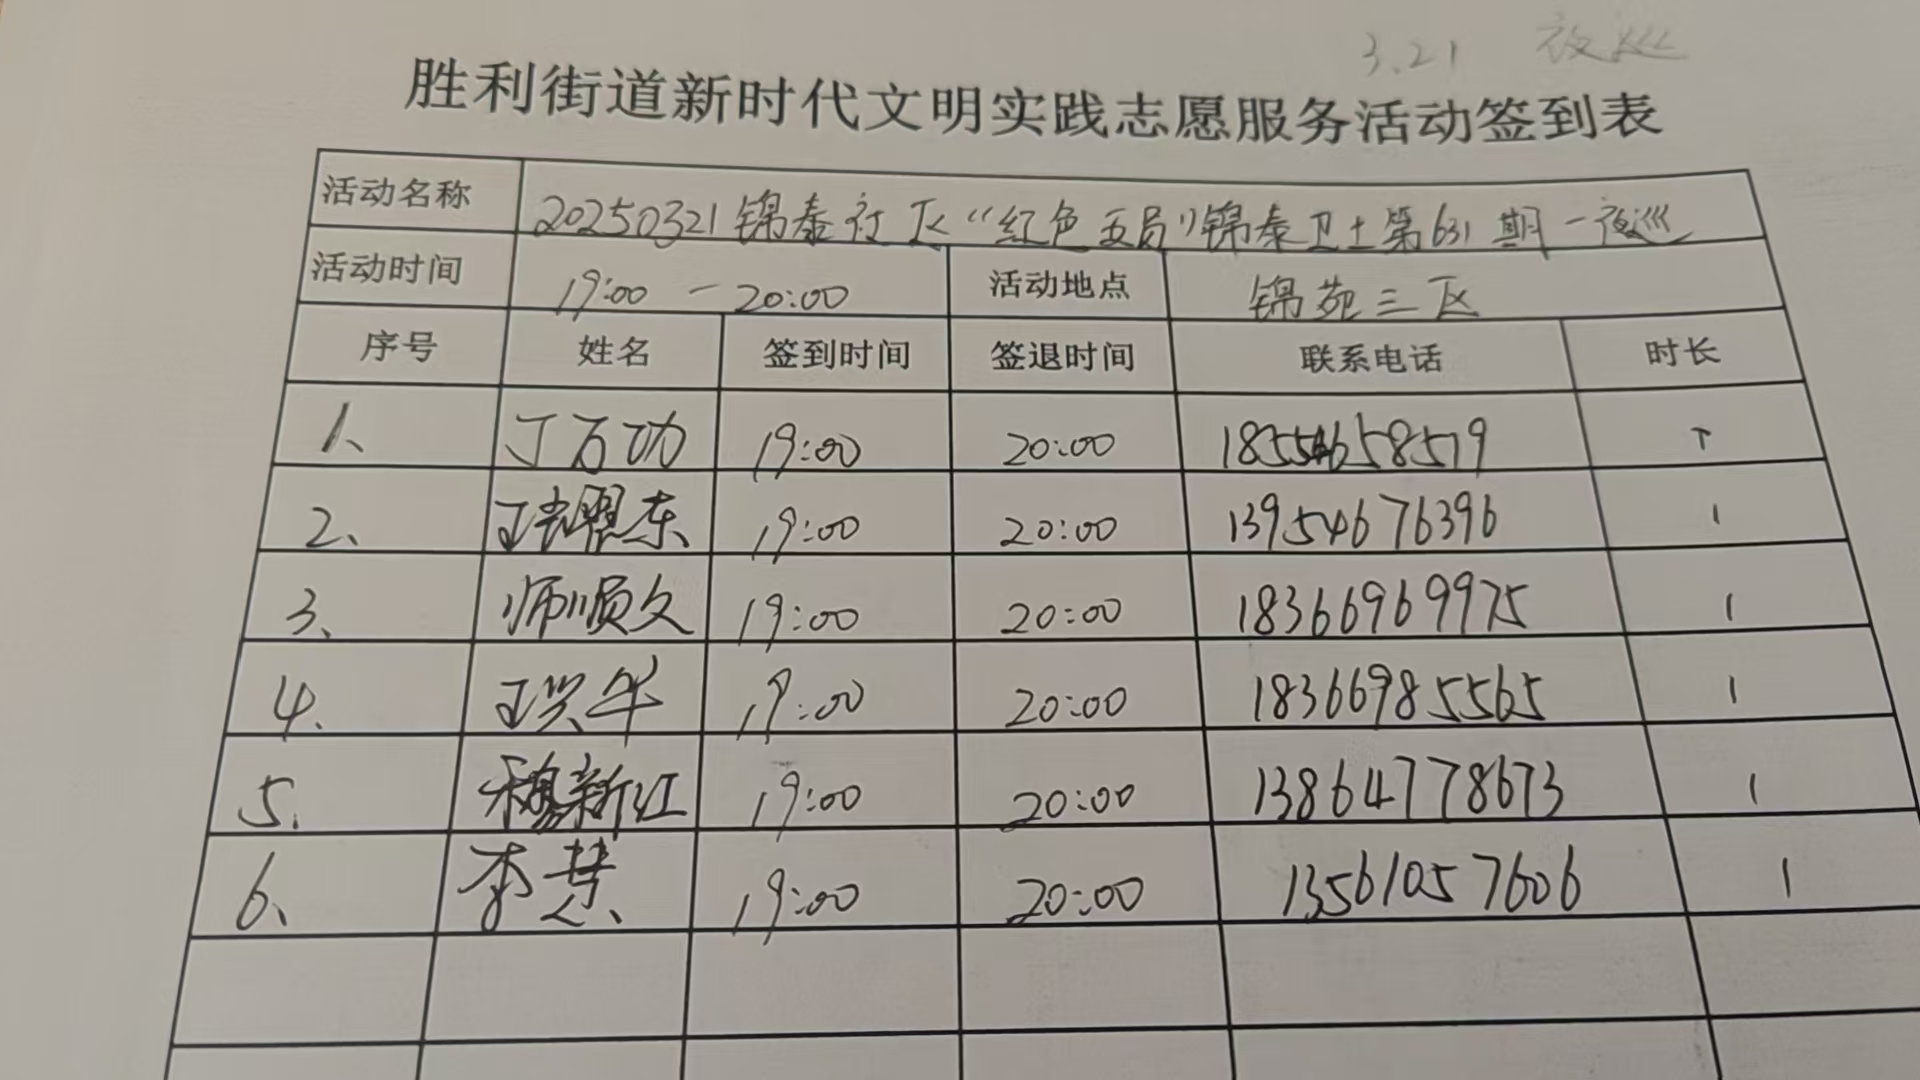 3.21 夜巡
胜利街道新时代文明实践志愿服务活动签到表
活动名称 20250321锦泰社区“红色五员”锦泰卫士第631期一夜巡
活动时间 19:00 — 20:00 活动地点 锦苑三区
序号 姓名 签到时间 签退时间 联系电话 时长
1、 丁万功 19:00 20:00 18554658519
2、 东 19:00 20:00 13954676396 1
3、 师顺文 19:00 20:00 18366969975 1
4. 王兴华 19:00 20:00 18366985565 1
5. 穆新红 19:00 20:00 13864778673 1
6、 李慧 19:00 20:00 13561057606 1